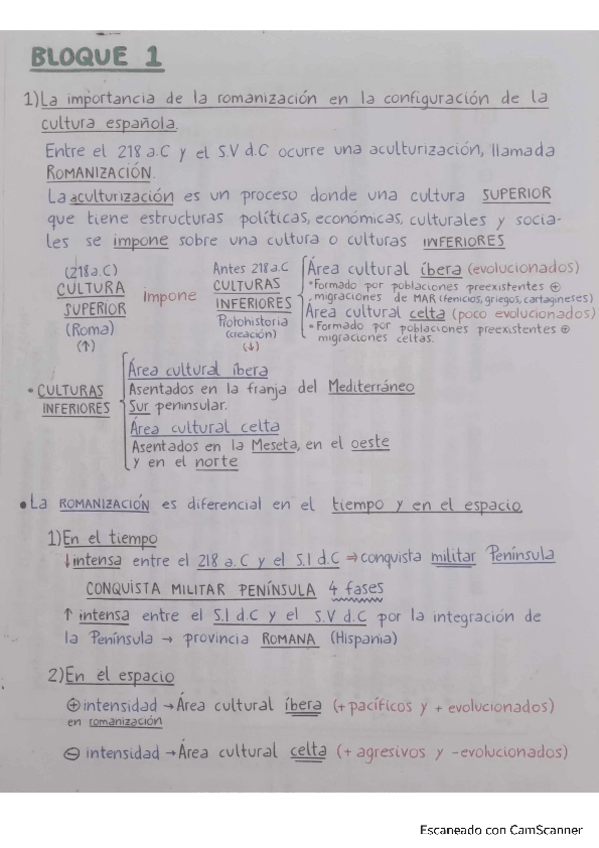 BLOQUE 1
1) La importancia de la romanización en la configuración de la
cultura española.
Entre el 218 a.C y el S.V d.C ocurre una aculturización, llamada
ROMANIZACIÓN.
La aculturización es un proceso donde una cultura SUPERIOR
que tiene estructuras políticas, económicas, culturales y socia-
les se impone sobre una cultura o culturas INFERIORES
(218 a.C)
CULTURA
SUPERIOR
(Roma)
(↑)
impone
Antes 218 a.C
CULTURAS
INFERIORES
Protohistoria
(creación)
(↓)
Área cultural íbera (evolucionados)
• Formado por poblaciones preexistentes ⊕
migraciones de MAR (fenicios, griegos, cartagineses)
Área cultural celta (poco evolucionados)
• Formado por poblaciones preexistentes ⊕
migraciones celtas.
• CULTURAS
INFERIORES
Área cultural íbera
Asentados en la franja del Mediterráneo
Sur peninsular.
Área cultural celta
Asentados en la Meseta, en el oeste
y en el norte
• La ROMANIZACIÓN es diferencial en el tiempo y en el espacio
1) En el tiempo
↓ intensa entre el 218 a.C y el S.I d.C ⇒ conquista militar Península
CONQUISTA MILITAR PENÍNSULA 4 fases
↑ intensa entre el S.I d.C y el S.V d.C por la integración de
la Península → provincia ROMANA (Hispania)
2) En el espacio
⊕ intensidad → Área cultural íbera (+ pacíficos y + evolucionados)
en romanización
⊖ intensidad → Área cultural celta (+ agresivos y - evolucionados)
Escaneado con CamScanner